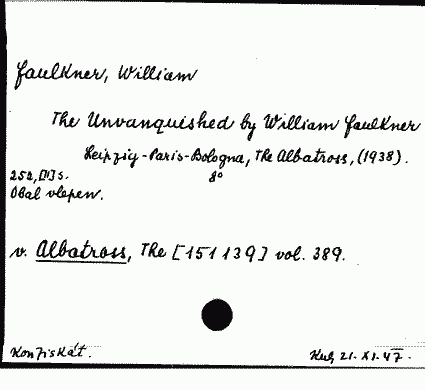 Faulkner, William
The Unvanquished by William Faulkner
Leipzig-Paris-Bologna, The Albatross, (1938).
252, [1] s. 8°
Obal vlepen.
v. Albatross, The [151139] vol. 389.
Konfiskát. 21. XI. 47.